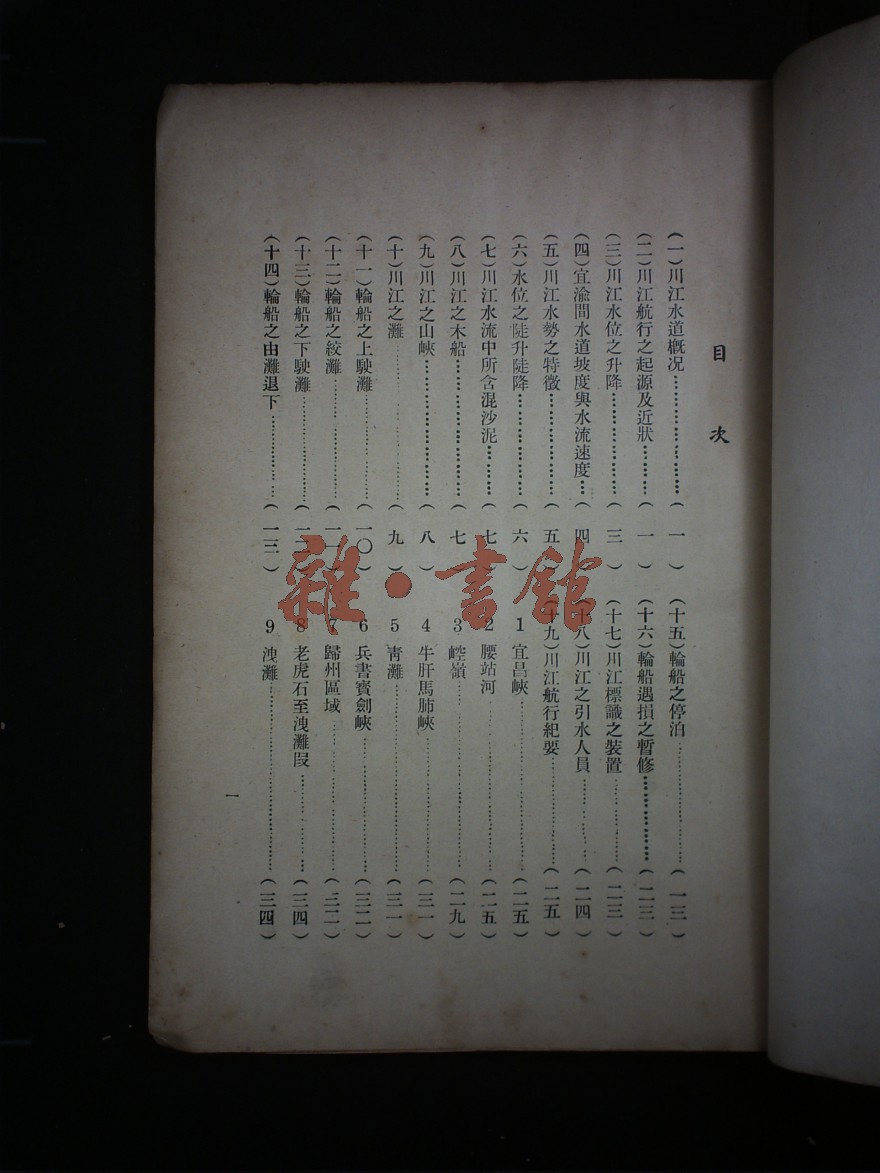 目次
(一)川江水道概況……(一)
(二)川江航行之起源及近狀……(一)
(三)川江水位之升降……(三)
(四)宜渝間水道坡度與水流速度……(四)
(五)川江水勢之特徵……(五)
(六)水位之陡升陡降……(六)
(七)川江水流中所含混沙泥……(七)
(八)川江之木船……(七)
(九)川江之山峽……(八)
(十)川江之灘……(九)
(十一)輪船之上駛灘……(一〇)
(十二)輪船之絞灘……(一一)
(十三)輪船之下駛灘……(一二)
(十四)輪船之由灘退下……(一三)
(十五)輪船之停泊……(一三)
(十六)輪船遇損之暫修……(二三)
(十七)川江標識之裝置……(二三)
(十八)川江之引水人員……(二四)
(十九)川江航行紀要……(二五)
1 宜昌峽……(二五)
2 腰站河……(二五)
3 崆嶺……(二九)
4 牛肝馬肺峽……(三一)
5 青灘……(三一)
6 兵書寶劍峽……(三二)
7 歸州區域……(三二)
8 老虎石至洩灘段……(三四)
9 洩灘……(三四)
一
雜·書館